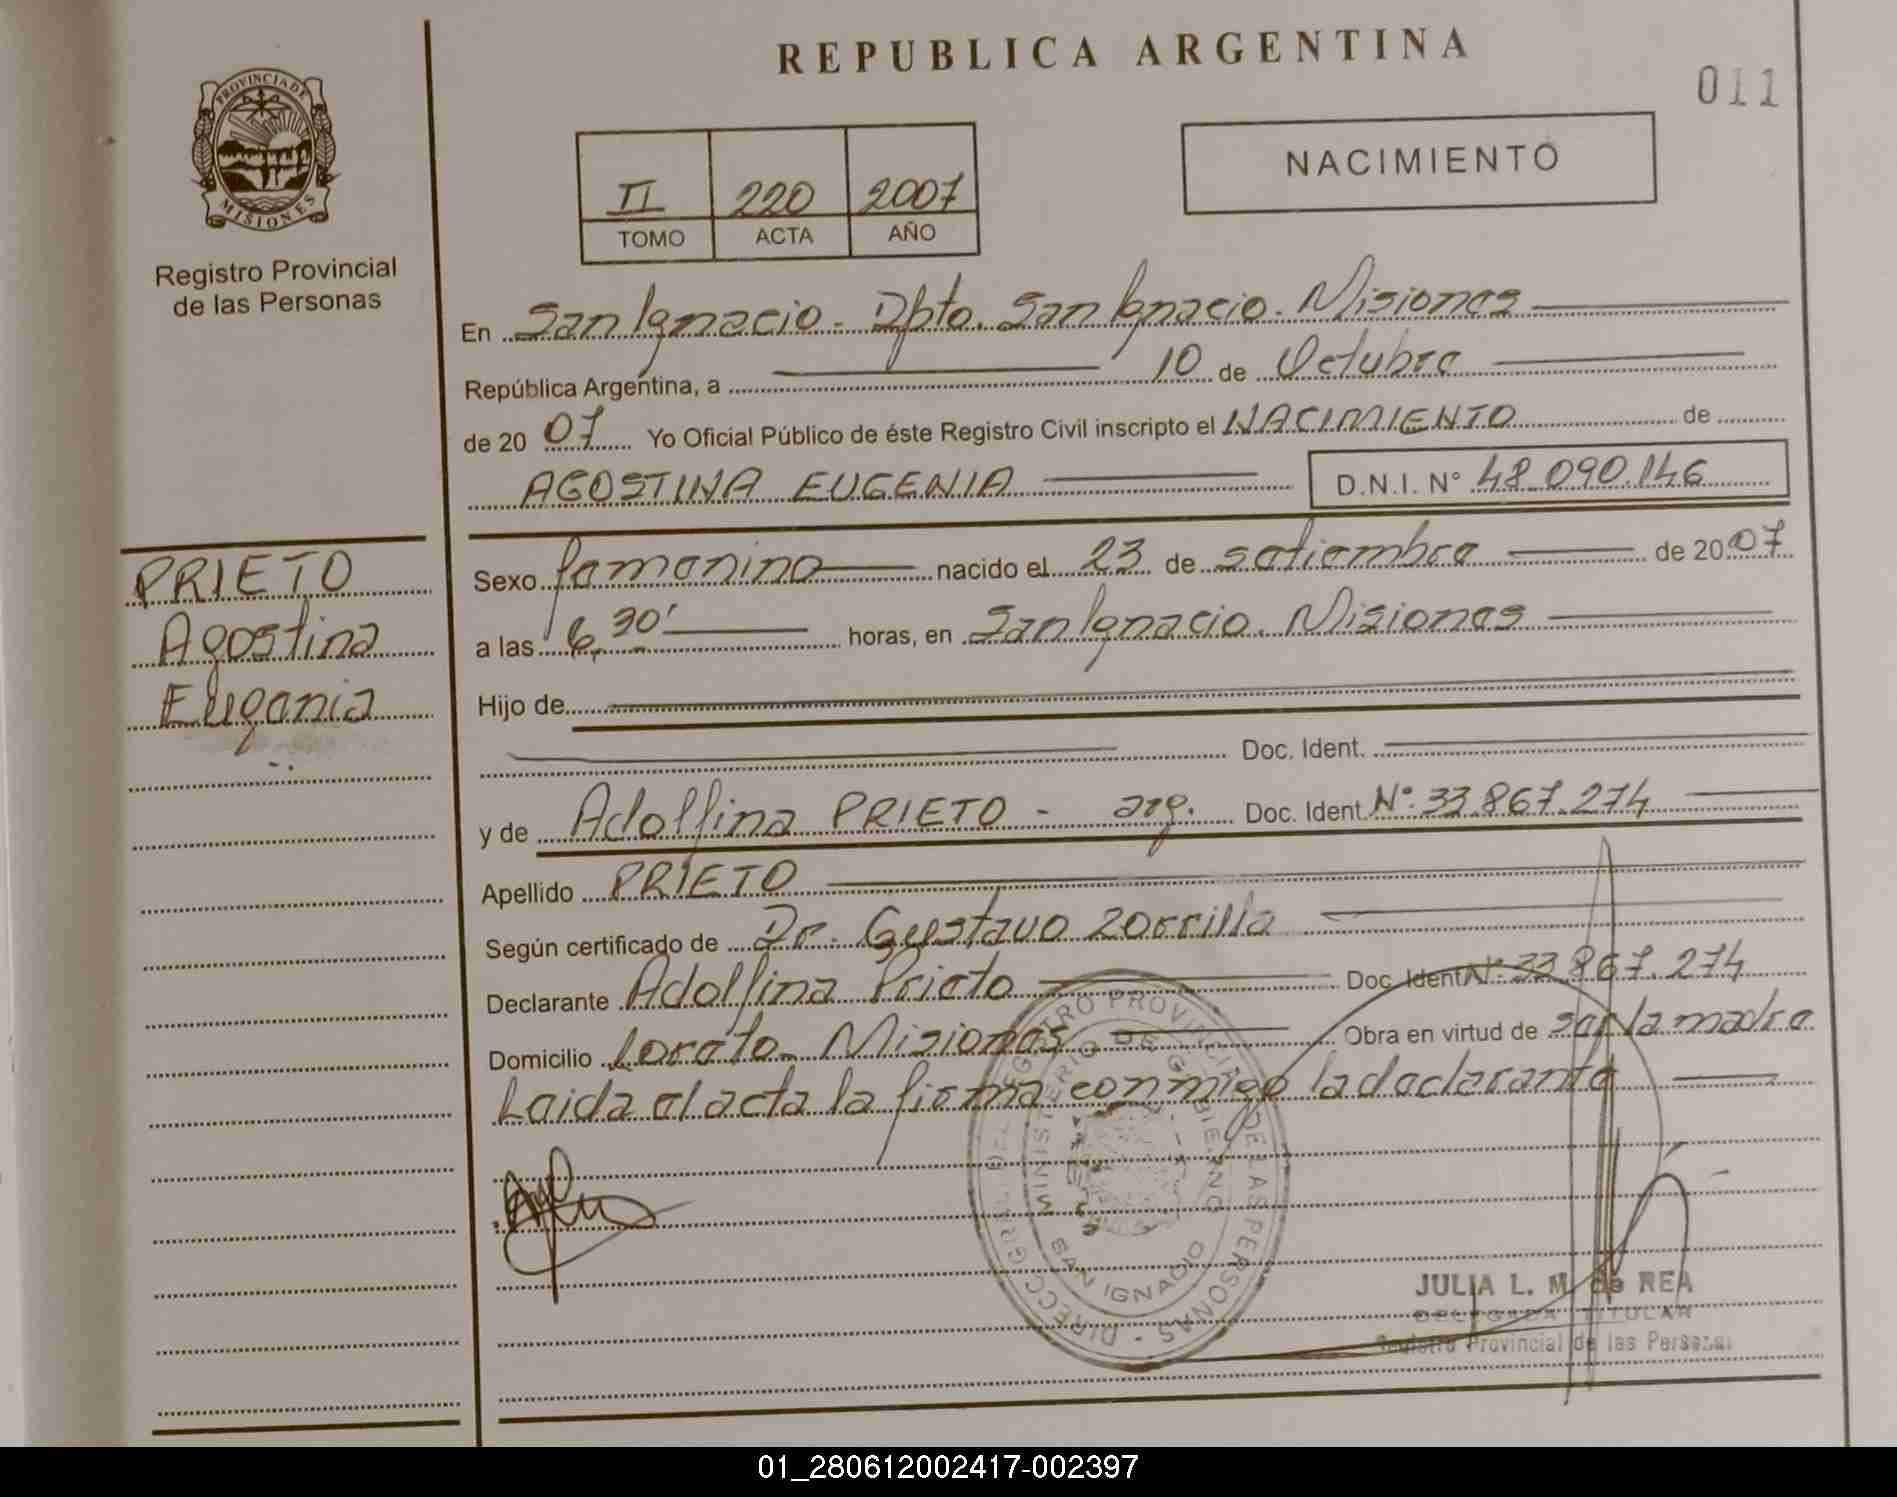 REPUBLICA ARGENTINA
011
PROVINCIA DE MISIONES
Registro Provincial
de las Personas
NACIMIENTO
II 220 2007
TOMO ACTA AÑO
En San Ignacio - Dpto. San Ignacio - Misiones
República Argentina, a 10 de Octubre
de 20 07 Yo Oficial Público de éste Registro Civil inscripto el NACIMIENTO de
AGOSTINA EUGENIA D.N.I. N° 48.090.146
PRIETO
Agostina
Eugenia
Sexo femenino nacido el 23 de setiembre de 20 07
a las 6,30' horas, en San Ignacio. Misiones
Hijo de
Doc. Ident.
y de Adolfina PRIETO - arg. Doc. Ident. N°. 33.867.274
Apellido PRIETO
Según certificado de Dr. Gustavo Zorrilla
Declarante Adolfina Prieto Doc. Ident N°. 33.867.274
Domicilio Loreto - Misiones Obra en virtud de ser la madre
Leida el acta la firma conmigo la declarante
DIRECC GRAL DEL REGISTRO PROVINCIAL DE LAS PERSONAS
MINISTERIO DE GOBIERNO
SAN IGNACIO
JULIA L. M. de REA
DELEGADA TITULAR
Registro Provincial de las Personas
01_280612002417-002397